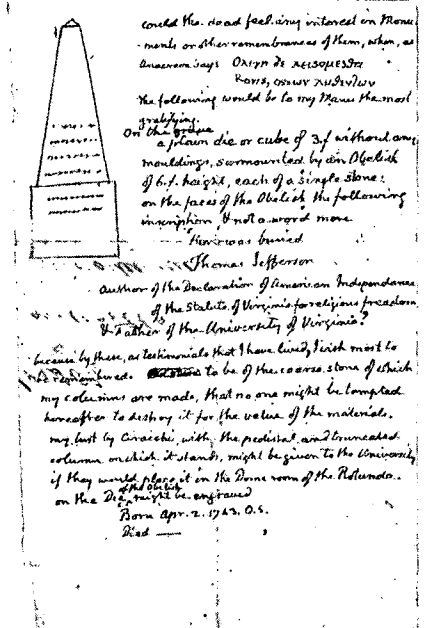 could the dead feel any interest in Monu
-ments or other remembrances of them, when, as
Anacreon says Ολιγη δε κεισομεσθα
Κονις, οστεων λυθεντων
the following would be to my Manes the most
gratifying.
On the grave
a plain die or cube of 3.f without any
mouldings, surmounted by an Obelisk
of 6.f. height, each of a single stone:
on the faces of the Obelisk the following
inscription, & not a word more
Here was buried
Thomas Jefferson
author of the Declaration of American Independance
of the Statute of Virginia for religious freedom
& Father of the University of Virginia.
because by these, as testimonials that I have lived, I wish most to
be remembered. to be of the coarse stone of which
my columns are made, that no one might be tempted
hereafter to destroy it for the value of the materials.
my bust by Ciracchi, with the pedestal and truncated
column on which it stands, might be given to the University
if they would place it in the Dome room of the Rotunda.
on the Die of the Obelisk might be engraved
Born Apr. 2. 1743. O.S.
Died ——